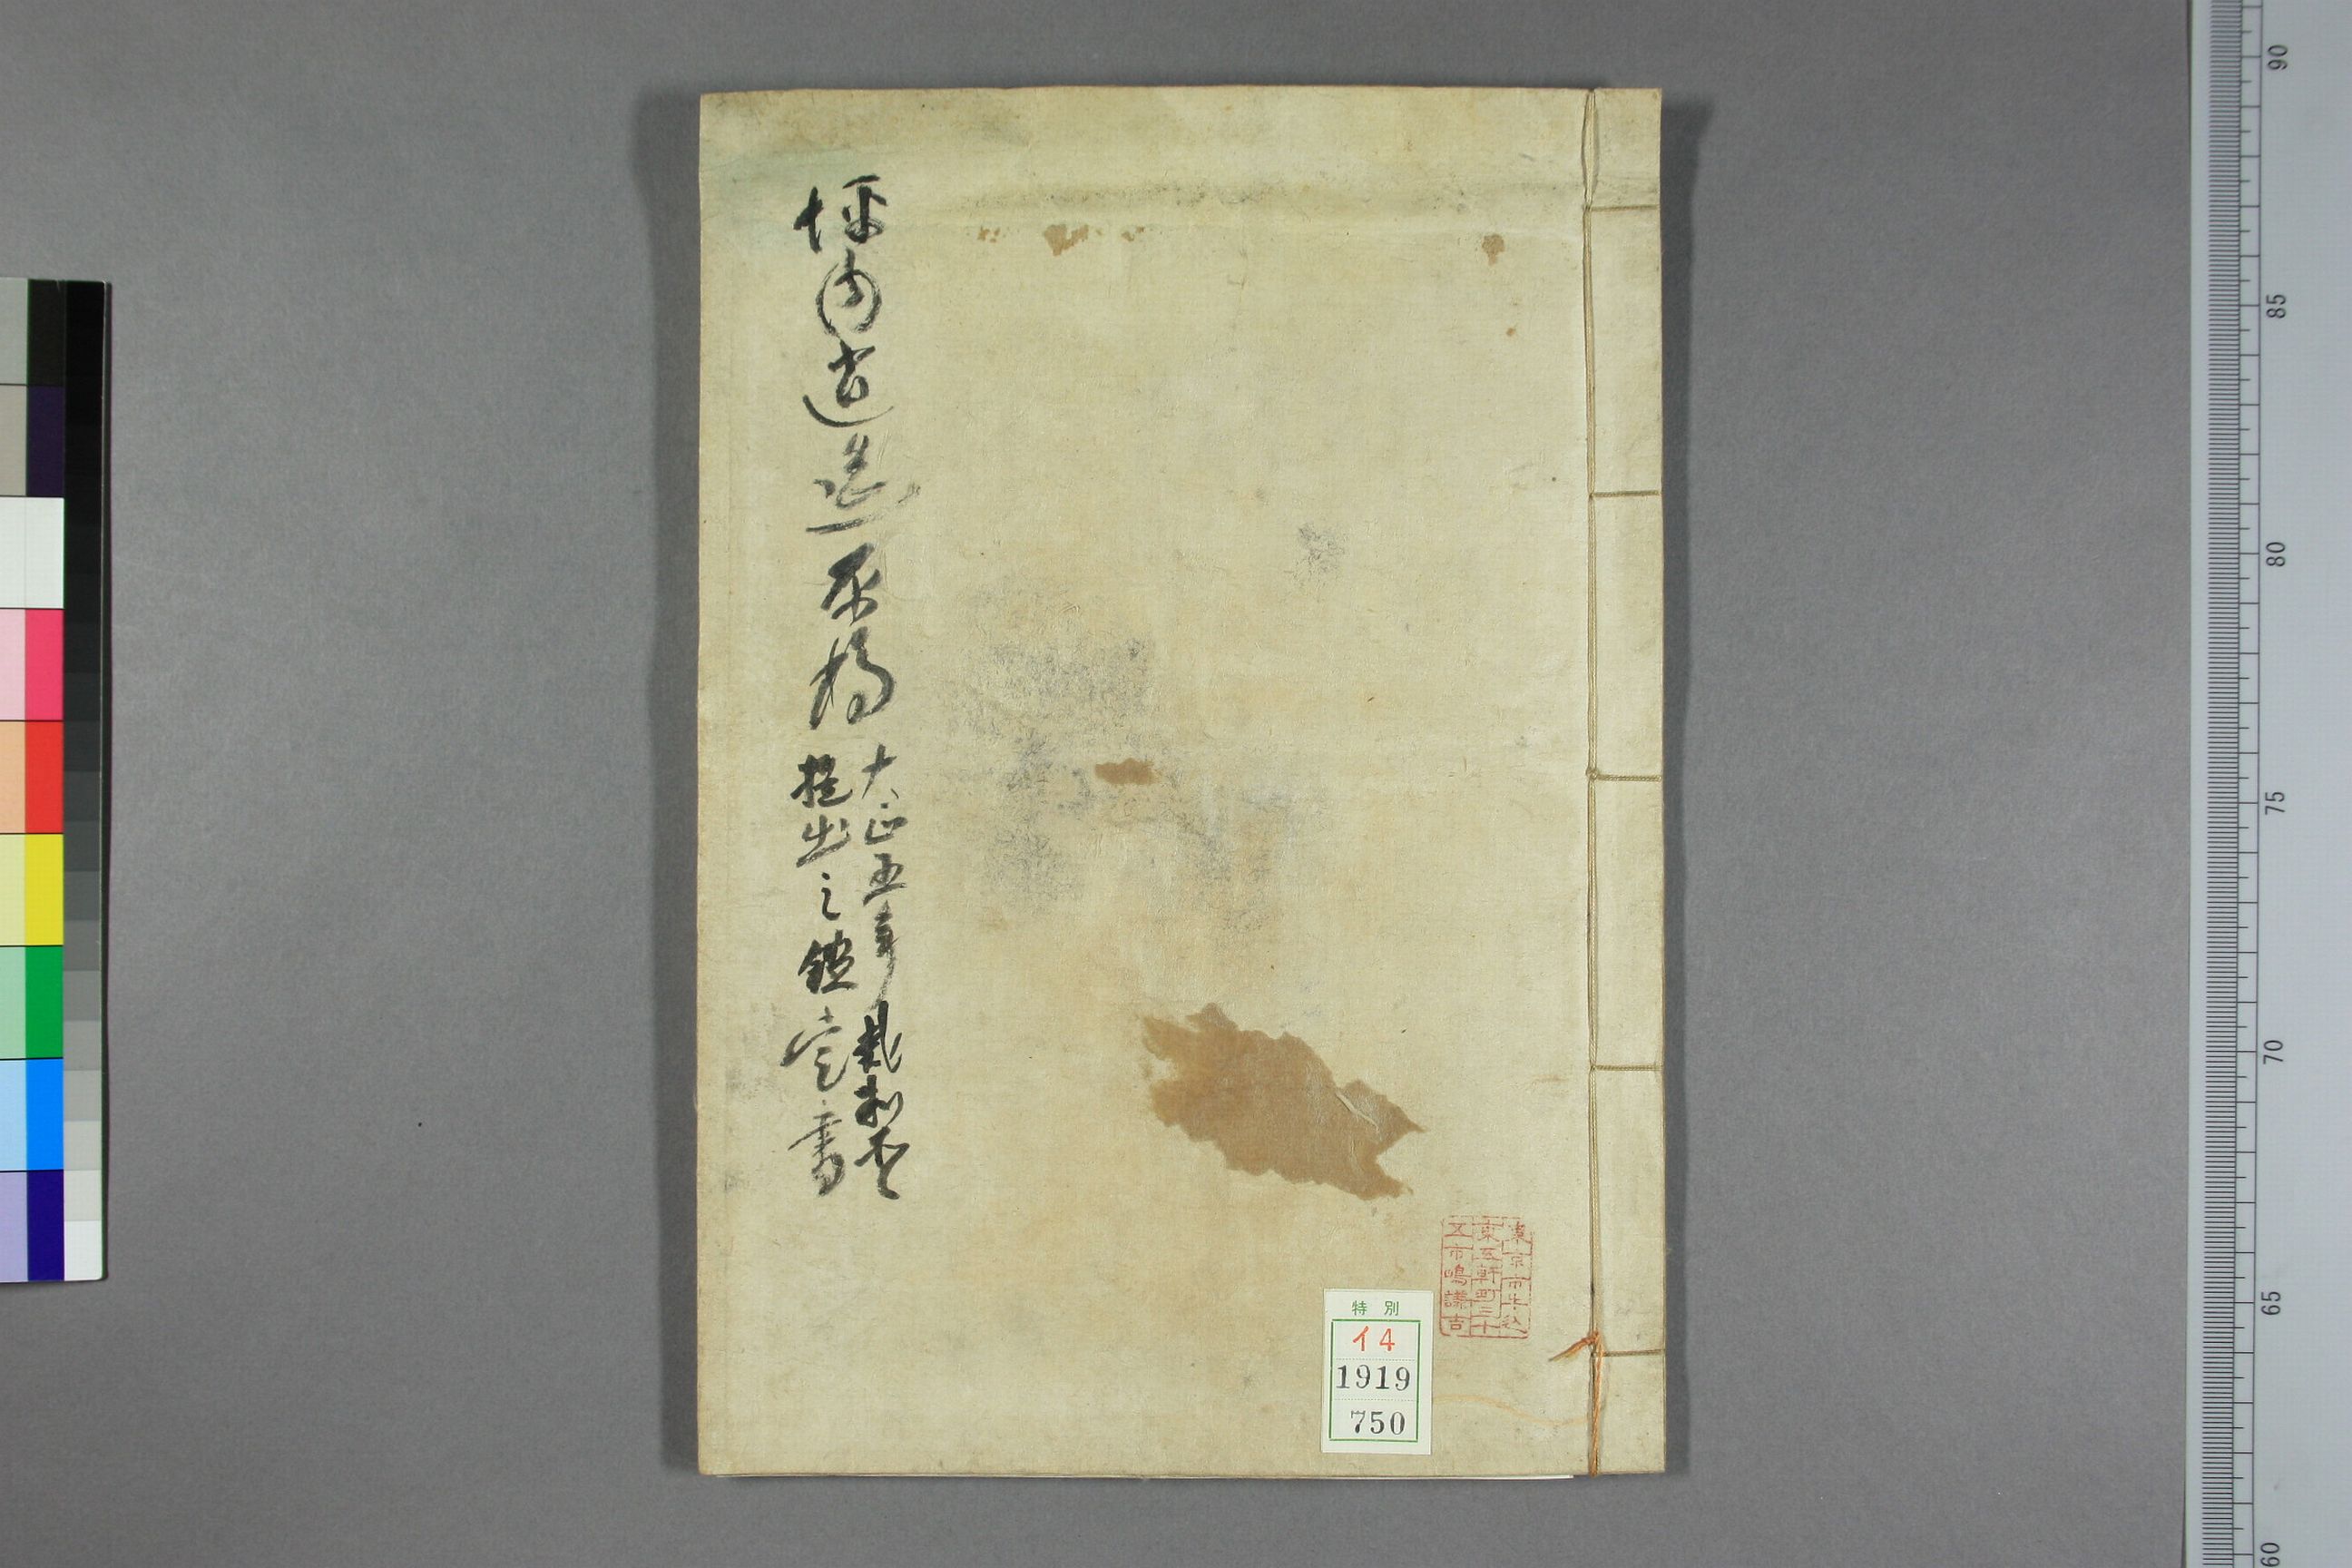 坪内逍遥原稿
大正五年裁判所
提出之鑑定書
東京市牛込
東五軒町三十
五市嶋謙吉
特別
イ4
1919
750
90
85
80
75
70
65
60